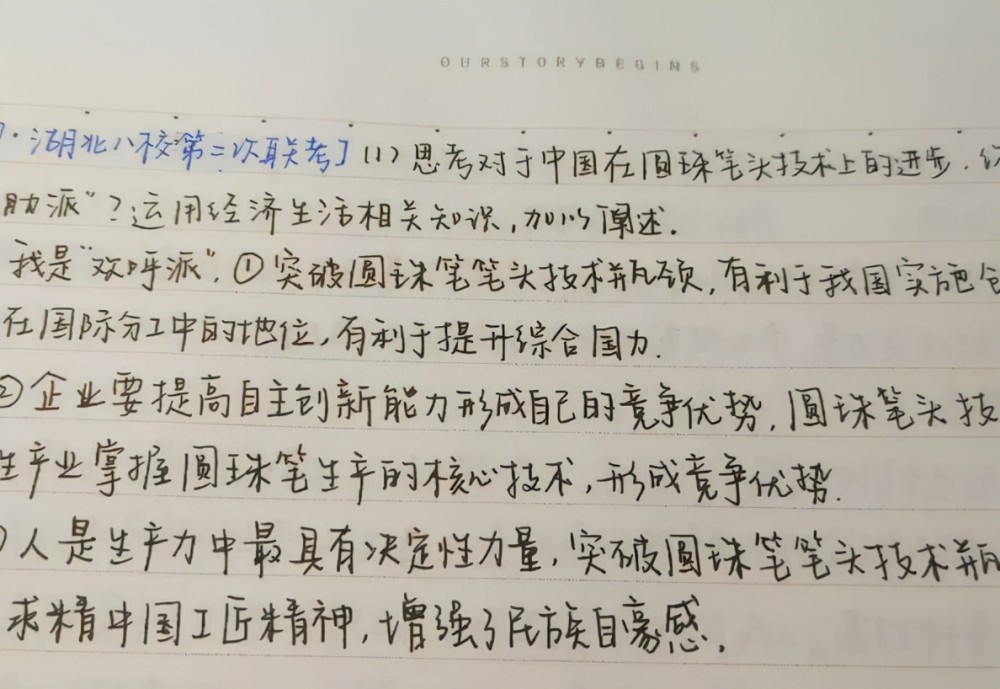 OURSTORYBEGINS
·湖北八校第二次联考](1)思考对于中国在圆珠笔头技术上的进步.
助派"?运用经济生活相关知识,加以阐述.
我是"欢呼派".①突破圆珠笔笔头技术瓶颈,有利于我国实施
在国际分工中的地位,有利于提升综合国力.
②企业要提高自主创新能力形成自己的竞争优势,圆珠笔头技
生产业掌握圆珠笔生产的核心技术,形成竞争优势.
人是生产力中最具有决定性力量,突破圆珠笔笔头技术瓶
求精中国工匠精神,增强了民族自豪感.